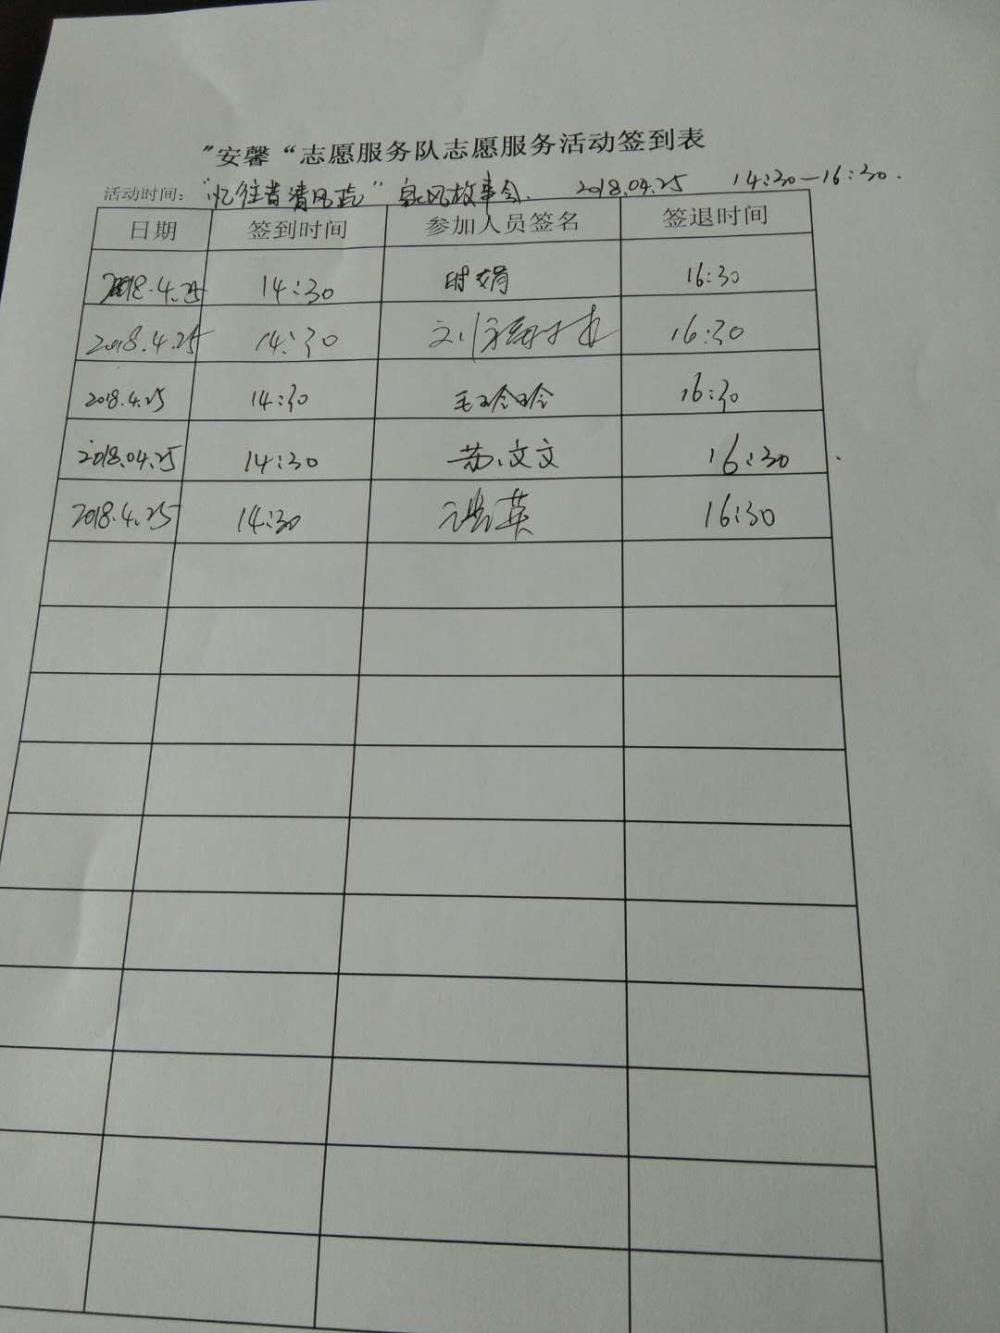 "安馨“志愿服务队志愿服务活动签到表
活动时间：“忆往昔清风起”家风故事会. 2018.04.25 14:30—16:30.
日期 签到时间 参加人员签名 签退时间
2018.4.25 14:30 时娟 16:30
2018.4.25 14:30 16:30
2018.4.25 14:30 毛玲玲 16:30
2018.04.25 14:30 苏文文 16:30
2018.4.25 14:30 16:30